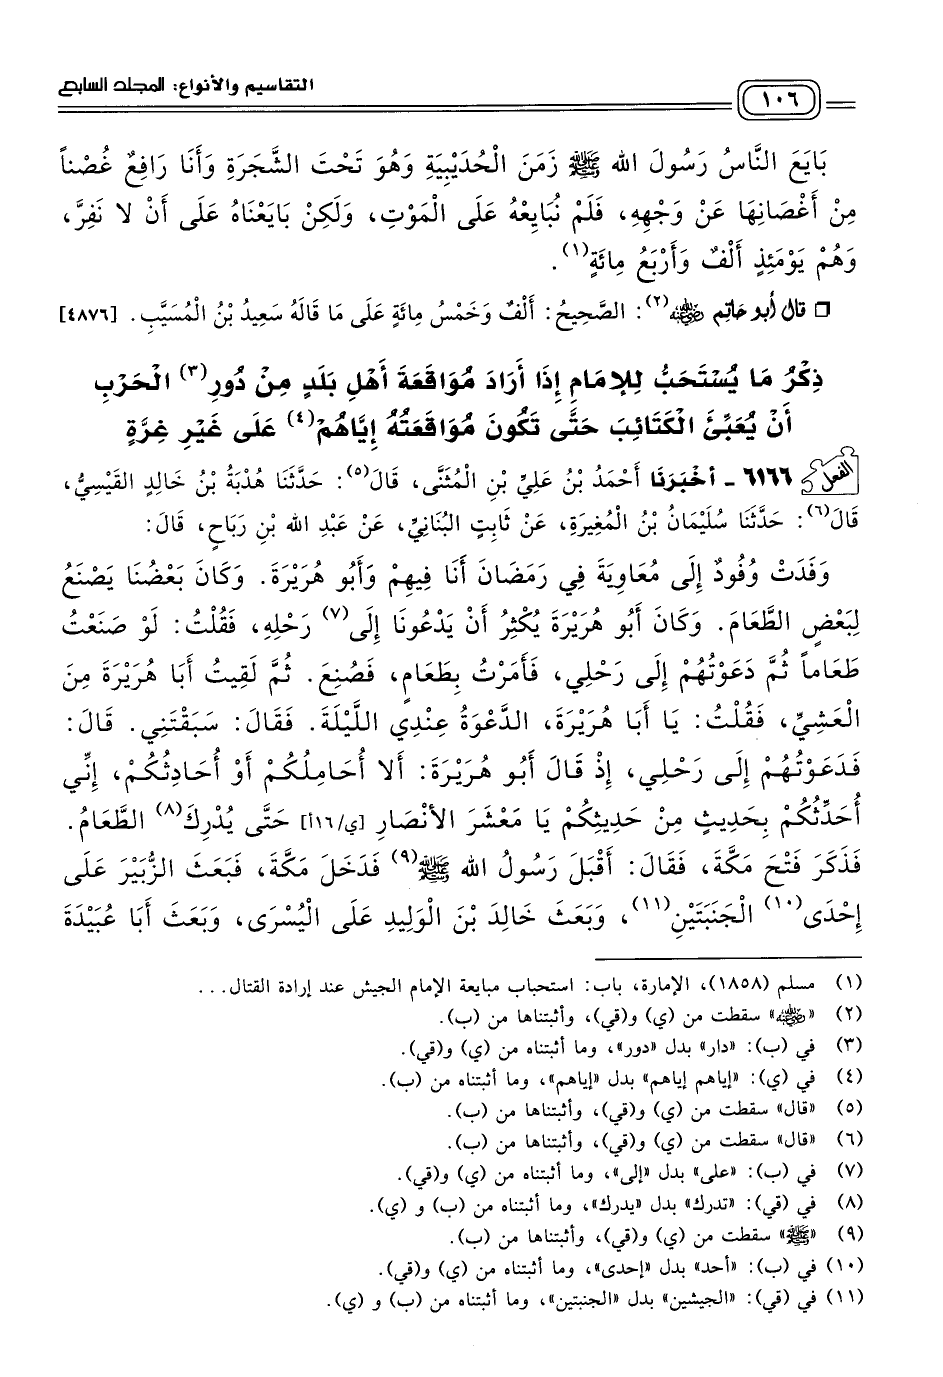 التقاسيم والأنواع: المجلد السابع
١٠٦
بَايَعَ النَّاسُ رَسُولَ الله ﷺ زَمَنَ الْحُدَيْبِيَةِ وَهُوَ تَحْتَ الشَّجَرَةِ وَأَنَا رَافِعٌ غُصْناً
مِنْ أَغْصَانِهَا عَنْ وَجْهِهِ، فَلَمْ نُبَايِعْهُ عَلَى الْمَوْتِ، وَلَكِنْ بَايَعْنَاهُ عَلَى أَنْ لا نَفِرَّ،
وَهُمْ يَوْمَئِذٍ أَلْفٌ وَأَرْبَعُ مِائَةٍ(١).
❒ قال أبو حاتم ﵁(٢): الصَّحِيحُ: أَلْفٌ وَخَمْسُ مِائَةٍ عَلَى مَا قَالَهُ سَعِيدُ بْنُ الْمُسَيَّبِ. [٤٨٧٦]
ذِكْرُ مَا يُسْتَحَبُّ لِلإمَامِ إِذَا أَرَادَ مُوَاقَعَةَ أَهْلِ بَلَدٍ مِنْ دُورِ(٣) الْحَرْبِ
أَنْ يُعَبِّئَ الْكَتَائِبَ حَتَّى تَكُونَ مُوَاقَعَتُهُ إِيَّاهُمْ(٤) عَلَى غَيْرِ غِرَّةٍ
الفعل ٦١٦٦ - أخْبَرَنَا أَحْمَدُ بْنُ عَلِيِّ بْنِ الْمُثَنَّى، قَالَ(٥): حَدَّثَنَا هُدْبَةُ بْنُ خَالِدٍ القَيْسِيُّ،
قَالَ(٦): حَدَّثَنَا سُلَيْمَانُ بْنُ الْمُغِيرَةِ، عَنْ ثَابِتٍ البُنَانِيِّ، عَنْ عَبْدِ الله بْنِ رَبَاحٍ، قَالَ:
وَفَدَتْ وُفُودٌ إِلَى مُعَاوِيَةَ فِي رَمَضَانَ أَنَا فِيهِمْ وَأَبُو هُرَيْرَةَ. وَكَانَ بَعْضُنَا يَصْنَعُ
لِبَعْضٍ الطَّعَامَ. وَكَانَ أَبُو هُرَيْرَةَ يُكْثِرُ أَنْ يَدْعُونَا إِلَى(٧) رَحْلِهِ، فَقُلْتُ: لَوْ صَنَعْتُ
طَعَاماً ثُمَّ دَعَوْتُهُمْ إِلَى رَحْلِي، فَأَمَرْتُ بِطَعَامٍ، فَصُنِعَ. ثُمَّ لَقِيتُ أَبَا هُرَيْرَةَ مِنَ
الْعَشِيِّ، فَقُلْتُ: يَا أَبَا هُرَيْرَةَ، الدَّعْوَةُ عِنْدِي اللَّيْلَةَ. فَقَالَ: سَبَقْتَنِي. قَالَ:
فَدَعَوْتُهُمْ إِلَى رَحْلِي، إِذْ قَالَ أَبُو هُرَيْرَةَ: أَلا أُحَامِلُكُمْ أَوْ أُحَادِثُكُمْ، إِنِّي
أُحَدِّثُكُمْ بِحَدِيثٍ مِنْ حَدِيثِكُمْ يَا مَعْشَرَ الأَنْصَارِ [ي/١٦أ] حَتَّى يُدْرِكَ(٨) الطَّعَامُ.
فَذَكَرَ فَتْحَ مَكَّةَ، فَقَالَ: أَقْبَلَ رَسُولُ الله ﷺ(٩) فَدَخَلَ مَكَّةَ، فَبَعَثَ الزُّبَيْرَ عَلَى
إِحْدَى(١٠) الْجَنَبَتَيْنِ(١١)، وَبَعَثَ خَالِدَ بْنَ الْوَلِيدِ عَلَى الْيُسْرَى، وَبَعَثَ أَبَا عُبَيْدَةَ
(١) مسلم (١٨٥٨)، الإمارة، باب: استحباب مبايعة الإمام الجيش عند إرادة القتال...
(٢) «﵁» سقطت من (ي) و(قي)، وأثبتناها من (ب).
(٣) في (ب): «دار» بدل «دور»، وما أثبتناه من (ي) و(قي).
(٤) في (ي): «إياهم إياهم» بدل «إياهم»، وما أثبتناه من (ب).
(٥) «قال» سقطت من (ي) و(قي)، وأثبتناها من (ب).
(٦) «قال» سقطت من (ي) و(قي)، وأثبتناها من (ب).
(٧) في (ب): «على» بدل «إلى»، وما أثبتناه من (ي) و(قي).
(٨) في (قي): «تدرك» بدل «يدرك»، وما أثبتناه من (ب) و (ي).
(٩) «ﷺ» سقطت من (ي) و(قي)، وأثبتناها من (ب).
(١٠) في (ب): «أحد» بدل «إحدى»، وما أثبتناه من (ي) و(قي).
(١١) في (قي): «الجيشين» بدل «الجنبتين»، وما أثبتناه من (ب) و (ي).